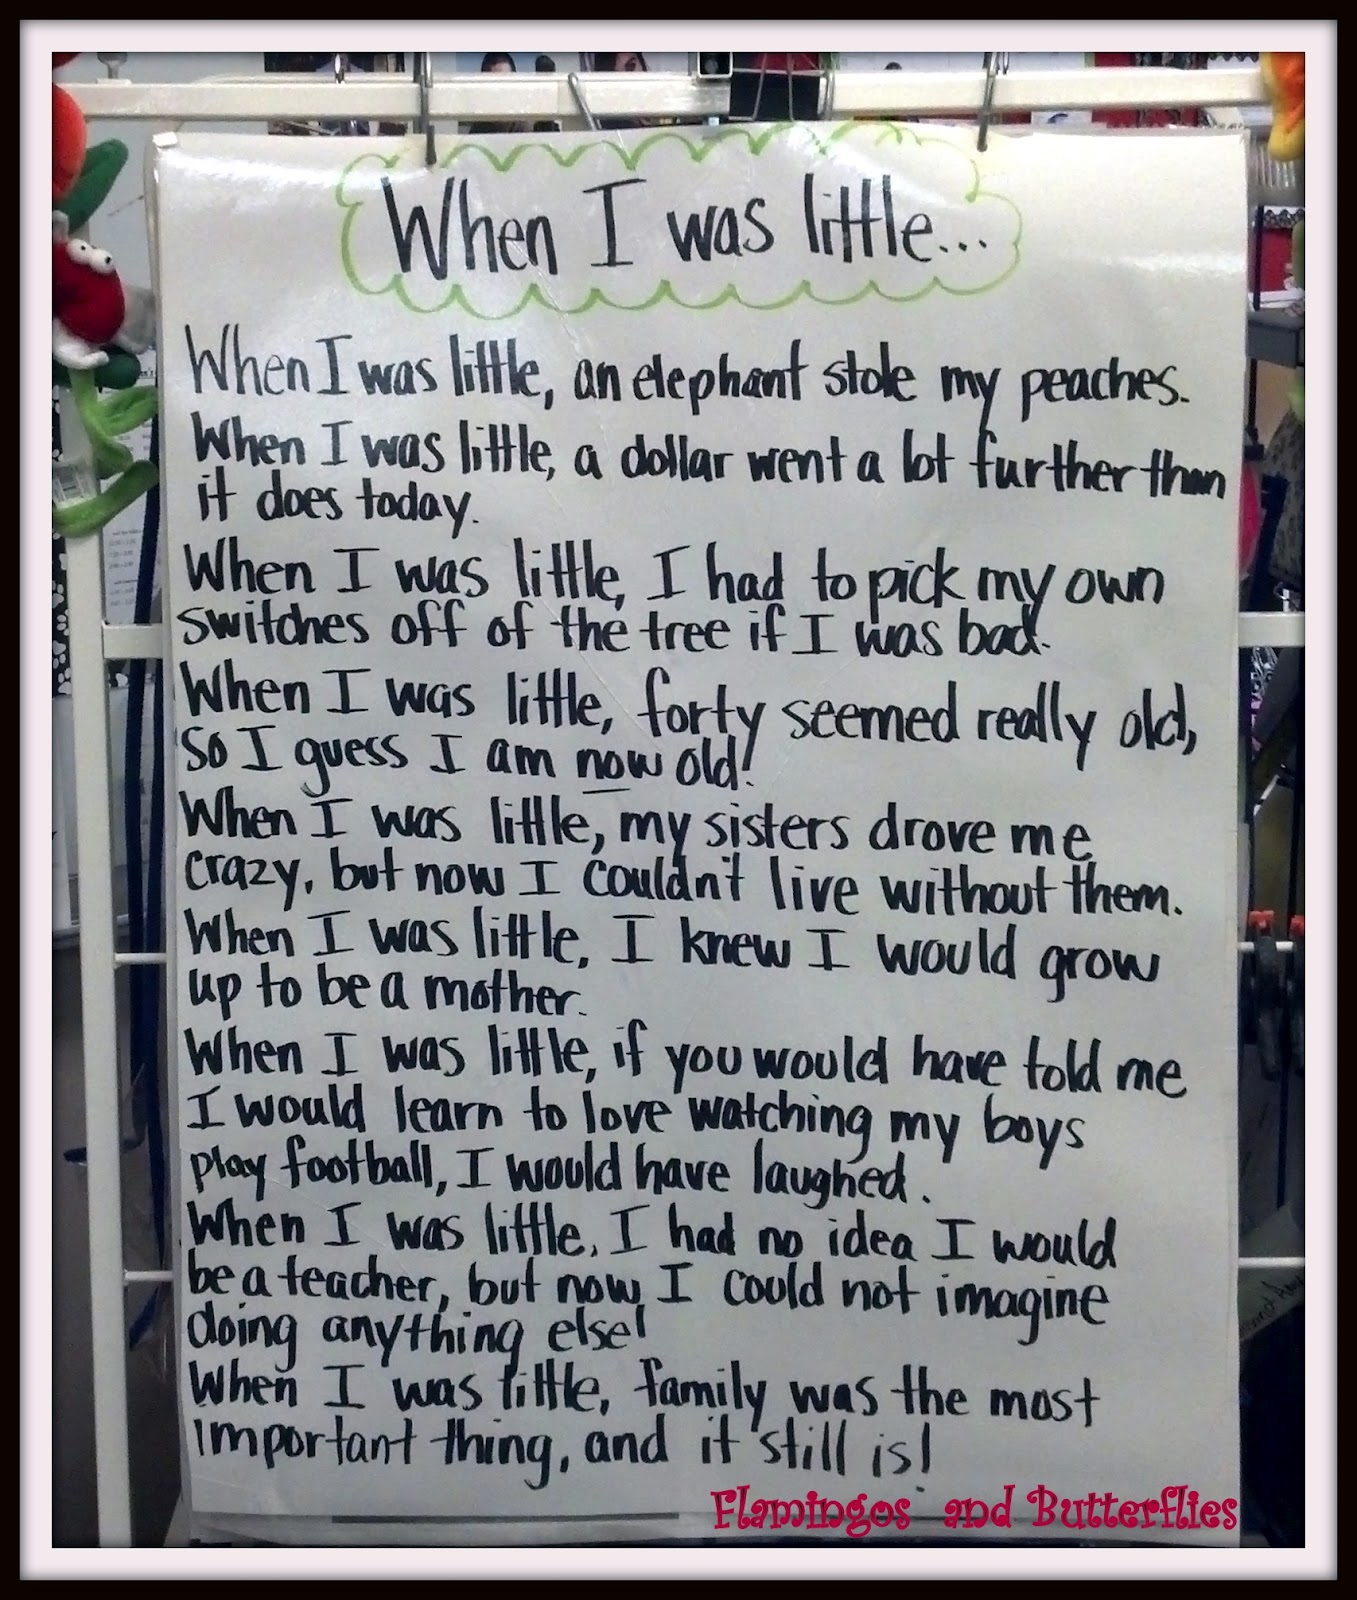 When I was little...
When I was little, an elephant stole my peaches.
When I was little, a dollar went a lot further than
it does today.
When I was little, I had to pick my own
switches off of the tree if I was bad.
When I was little, forty seemed really old,
So I guess I am now old!
When I was little, my sisters drove me
crazy, but now I couldn't live without them.
When I was little, I knew I would grow
up to be a mother.
When I was little, if you would have told me
I would learn to love watching my boys
play football, I would have laughed.
When I was little, I had no idea I would
be a teacher, but now I could not imagine
doing anything else!
When I was little, family was the most
important thing, and it still is!
Flamingos and Butterflies